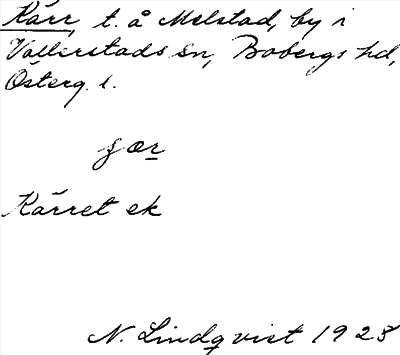 Kärr, t. å Melstad, by i
Vallerstads sn, Bobergs hd,
Österg. l.
Kärret ek
N. Lindqvist 1928